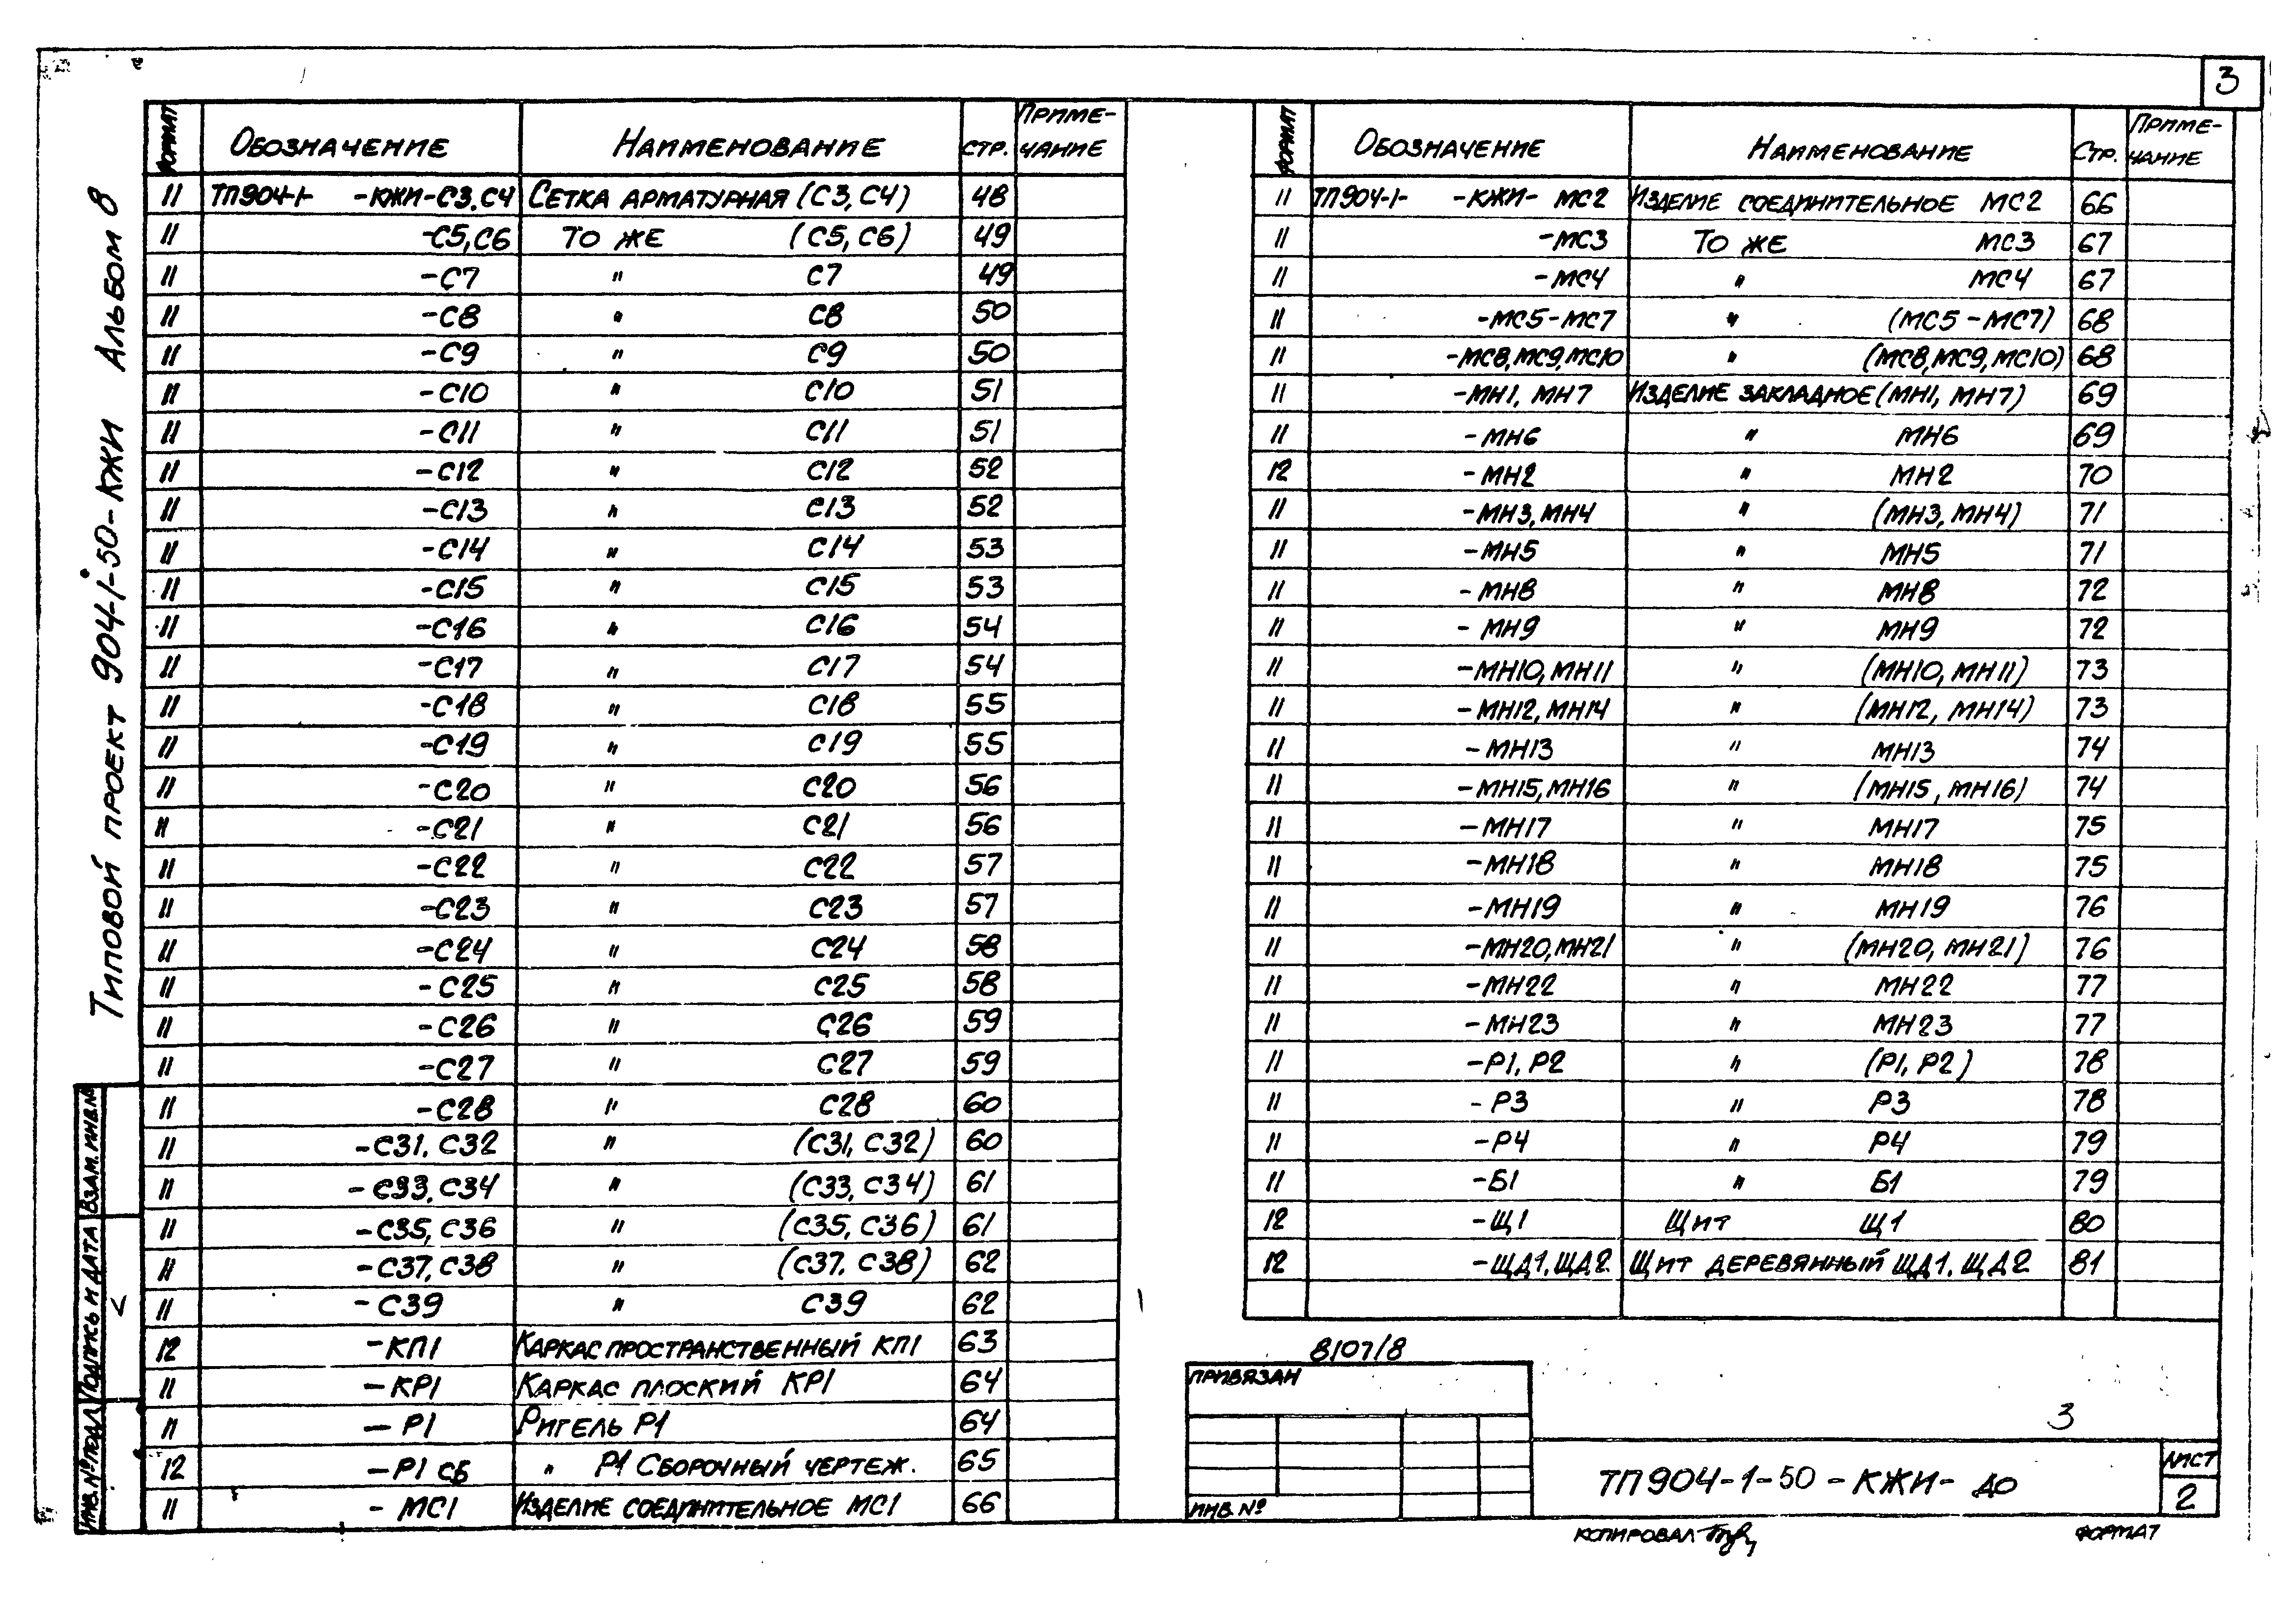 3
Типовой проект 904-1-50-КЖИ Альбом 8
Формат Обозначение Наименование Стр. Примечание
11 ТП904-1- -КЖИ-С3,С4 Сетка арматурная (С3,С4) 48
11 -С5,С6 То же (С5,С6) 49
11 -С7 " С7 49
11 -С8 " С8 50
11 -С9 " С9 50
11 -С10 " С10 51
11 -С11 " С11 51
11 -С12 " С12 52
11 -С13 " С13 52
11 -С14 " С14 53
11 -С15 " С15 53
11 -С16 " С16 54
11 -С17 " С17 54
11 -С18 " С18 55
11 -С19 " С19 55
11 -С20 " С20 56
11 -С21 " С21 56
11 -С22 " С22 57
11 -С23 " С23 57
11 -С24 " С24 58
11 -С25 " С25 58
11 -С26 " С26 59
11 -С27 " С27 59
11 -С28 " С28 60
11 -С31, С32 " (С31, С32) 60
11 -С33, С34 " (С33, С34) 61
11 -С35, С36 " (С35, С36) 61
11 -С37, С38 " (С37, С38) 62
11 -С39 " С39 62
12 -КП1 Каркас пространственный КП1 63
11 -КР1 Каркас плоский КР1 64
11 -Р1 Ригель Р1 64
12 -Р1 СБ " Р1 Сборочный чертеж. 65
11 -МС1 Изделие соединительное МС1 66
Формат Обозначение Наименование Стр. Примечание
11 ТП904-1- -КЖИ- МС2 Изделие соединительное МС2 66
11 -МС3 То же МС3 67
11 -МС4 " МС4 67
11 -МС5-МС7 " (МС5-МС7) 68
11 -МС8,МС9,МС10 " (МС8,МС9,МС10) 68
11 -МН1, МН7 Изделие закладное (МН1, МН7) 69
11 -МН6 " МН6 69
12 -МН2 " МН2 70
11 -МН3,МН4 " (МН3, МН4) 71
11 -МН5 " МН5 71
11 -МН8 " МН8 72
11 -МН9 " МН9 72
11 -МН10,МН11 " (МН10, МН11) 73
11 -МН12,МН14 " (МН12, МН14) 73
11 -МН13 " МН13 74
11 -МН15,МН16 " (МН15, МН16) 74
11 -МН17 " МН17 75
11 -МН18 " МН18 75
11 -МН19 " МН19 76
11 -МН20,МН21 " (МН20, МН21) 76
11 -МН22 " МН22 77
11 -МН23 " МН23 77
11 -Р1, Р2 " (Р1, Р2) 78
11 -Р3 " Р3 78
11 -Р4 " Р4 79
11 -Б1 " Б1 79
12 -Щ1 Щит Щ1 80
12 -ЩД1,ЩД2 Щит деревянный ЩД1, ЩД2 81
8107/8
Привязан
Инв. №
3
ТП904-1-50-КЖИ- ДО
Лист
2
Копировал
Формат
Инв.№ подл. Подпись и дата Взам. инв.№